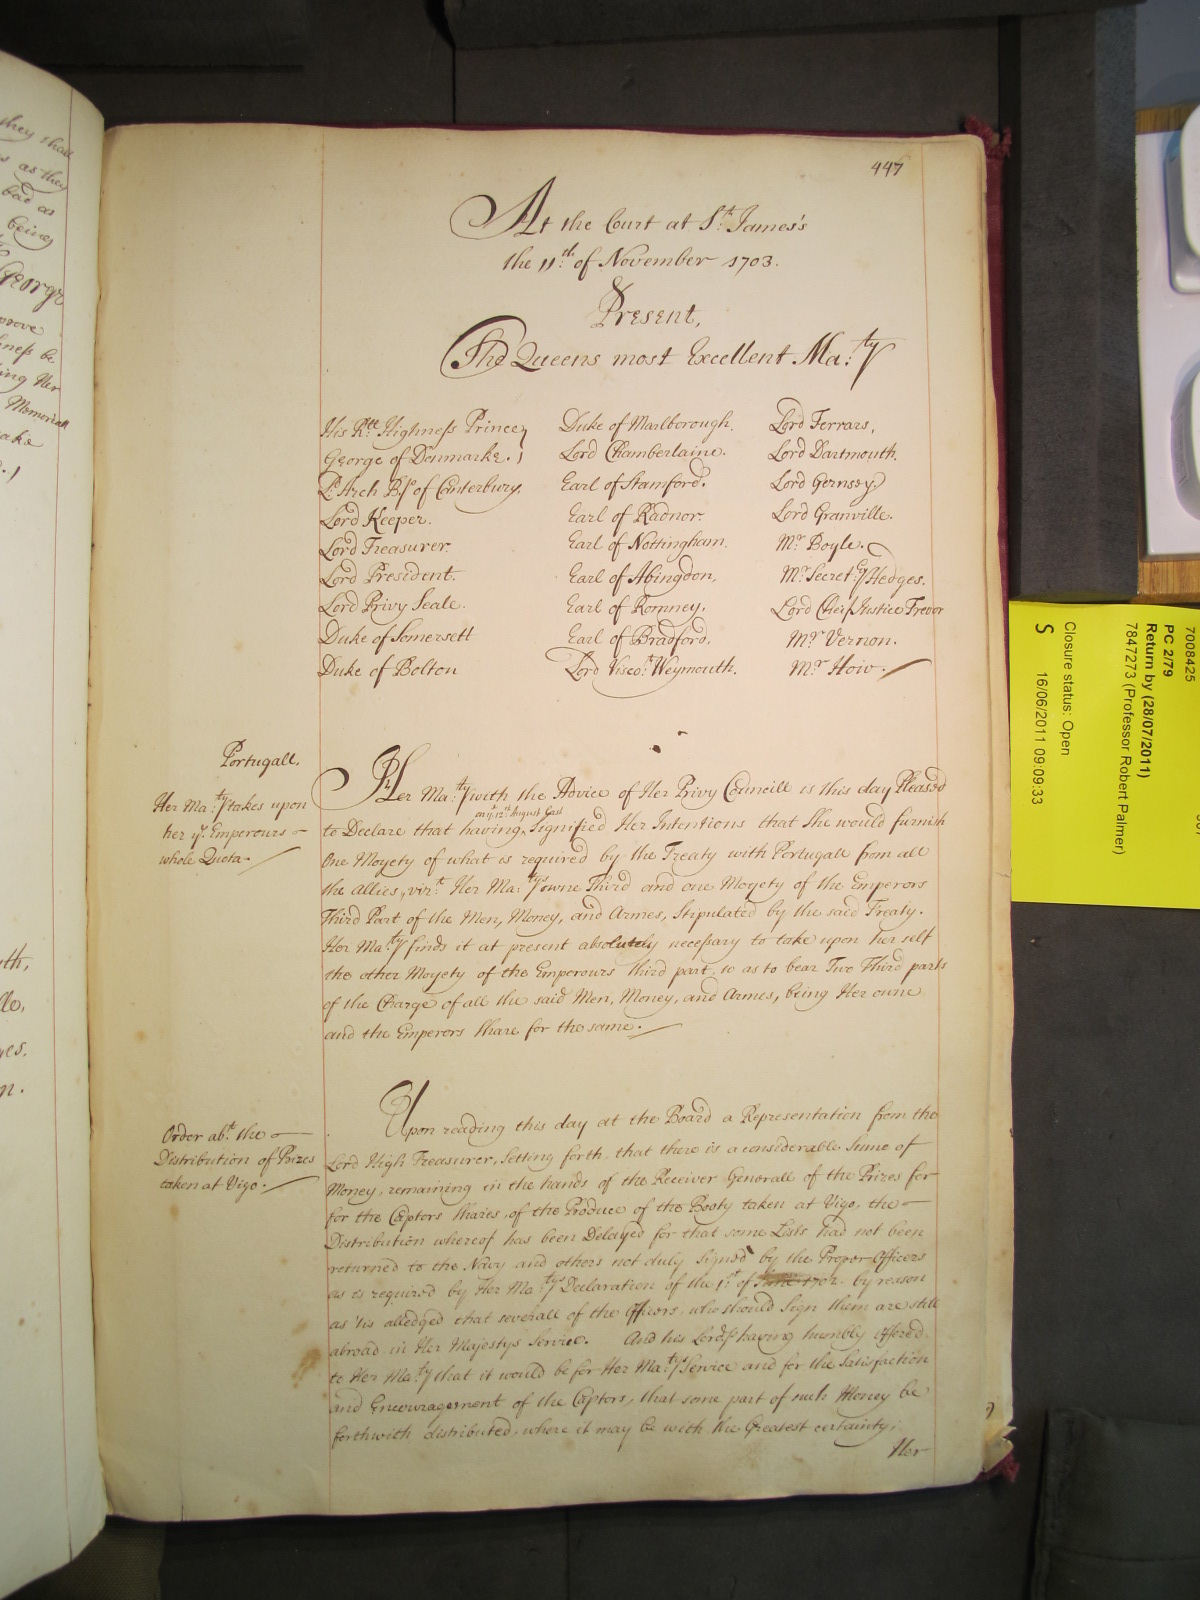 they shall
as they
bad as
being
George
prove
iness be
ing Her
Memorial
ake
447
At the Court at St. James's
the 11th. of November 1703.
Present,
The Queens most Excellent Ma:ty
His Rll Highness Prince
George of Denmarke.
Ld Arch Bp of Canterbury.
Lord Keeper.
Lord Treasurer.
Lord President.
Lord Privy Seale.
Duke of Somersett
Duke of Bolton
Duke of Marlborough.
Lord Chamberlaine.
Earl of Stamford.
Earl of Radnor.
Earl of Nottingham.
Earl of Abingdon.
Earl of Romney.
Earl of Bradford.
Lord Visco:t Weymouth.
Lord Ferrars,
Lord Dartmouth.
Lord Gernsey
Lord Granville.
Mr. Boyle.
Mr. Secret:ry Hedges.
Lord Cheif Justice Trevor
Mr. Vernon.
Mr. How.
Portugall.
Her Ma:ty takes upon
her ye. Emperours
whole Quota.
Her Ma:ty with the Advice of Her Privy Councill is this day Pleased
on ye. 12th. August last
to Declare that having Signified Her Intentions that She would furnish
One Moyety of what is required by the Treaty with Portugall from all
the allies, vizt. Her Ma:tys owne Third and one Moyety of the Emperors
Third Part of the Men, Money, and Armes, Stipulated by the said Treaty.
Her Ma:ty finds it at present absolutely necessary to take upon her self
the other Moyety of the Emperours third part, so as to bear Two Third parts
of the Charge of all the said Men, Money, and Armes, being Her owne
and the Emperors Share for the same.
Order abt. the
Distribution of Prizes
taken at Vigo.
Upon reading this day at the Board a Representation from the
Lord High Treasurer, Setting forth, that there is a considerable Sume of
Money, remaining in the hands of the Receiver Generall of the Prizes for
for the Captors Shares, of the Produce of the Booty taken at Vigo, the
Distribution whereof has been Delayed for that some Lists had not been
returned to the Navy and others not duly Signed by the Proper Officers
as is required by Her Ma:tys Declaration of the 1st. of June 1702. by reason
as 'tis alledged that severall of the Officers, who should Sign them are still
abroad in Her Majestys Service. And his Lordp having humbly offered
to Her Ma:ty that it would be for Her Ma:tys Service and for the Satisfaction
and Encouragement of the Captors, that some part of such Money be
forthwith distributed, where it may be with the Greatest certainty,
Her
7008425
PC 2/79
Return by (28/07/2011)
7847273 (Professor Robert Palmer)
Closure status: Open
S 16/06/2011 09:09:33